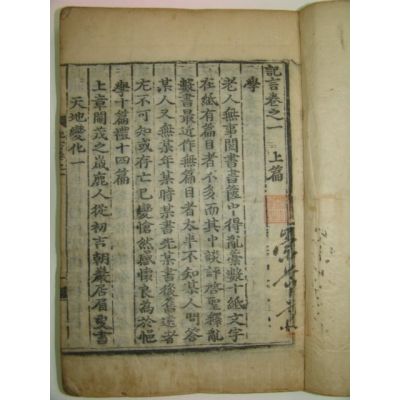 記言卷之一 上篇
學
老人無事閱書書篋中得亂藁數十紙文字
在紙有篇目者不多而其中談評聖釋亂
數書最近作無篇目者太半不知某人問答
某人又無某年某時某書先某書後舊遠者
尤不可知或存亡已變愴然感懷良為於悒
學十篇禮十四篇
上章閹茂之歲鹿人從初吉朝巖居眉叟書
天地變化一